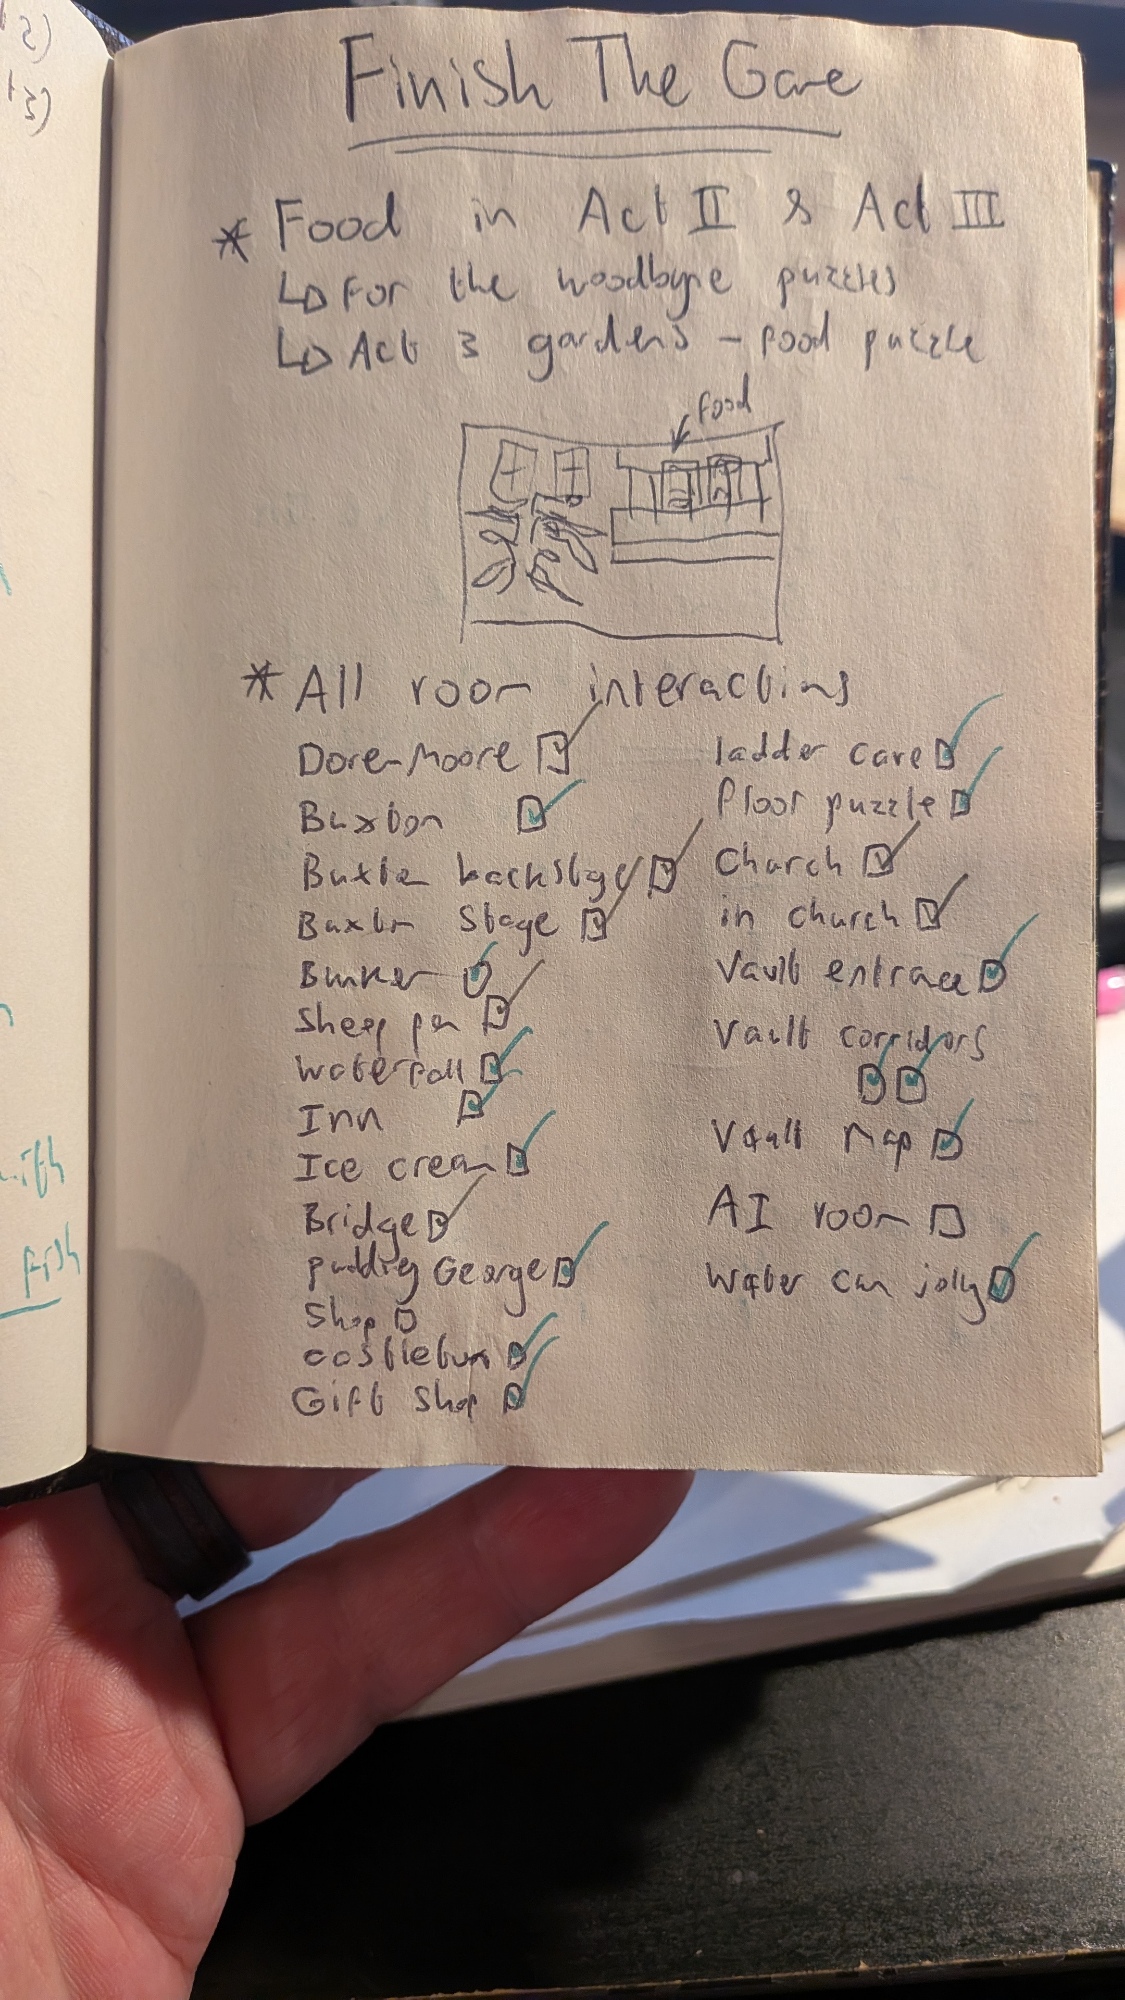 Finish The Game
* Food in Act II & Act III
↳ For the woodbyne puzzles
↳ Act 3 gardens - food puzzle
food
* All room interactions
Dore-Moore ☑
Buxton ☑
Buxton backstage ☑
Buxton Stage ☑
Bunker ☑
Sheep pen ☑
Waterfall ☑
Inn ☑
Ice cream ☑
Bridge ☑
Pudding George ☑
Shop ☐
castleton ☑
Gift Shop ☑
ladder cave ☑
floor puzzle ☑
Church ☑
in church ☑
Vault entrance ☑
Vault corridors
☑ ☑
Vault map ☑
AI room ☐
Water can jolly ☑
with
fish